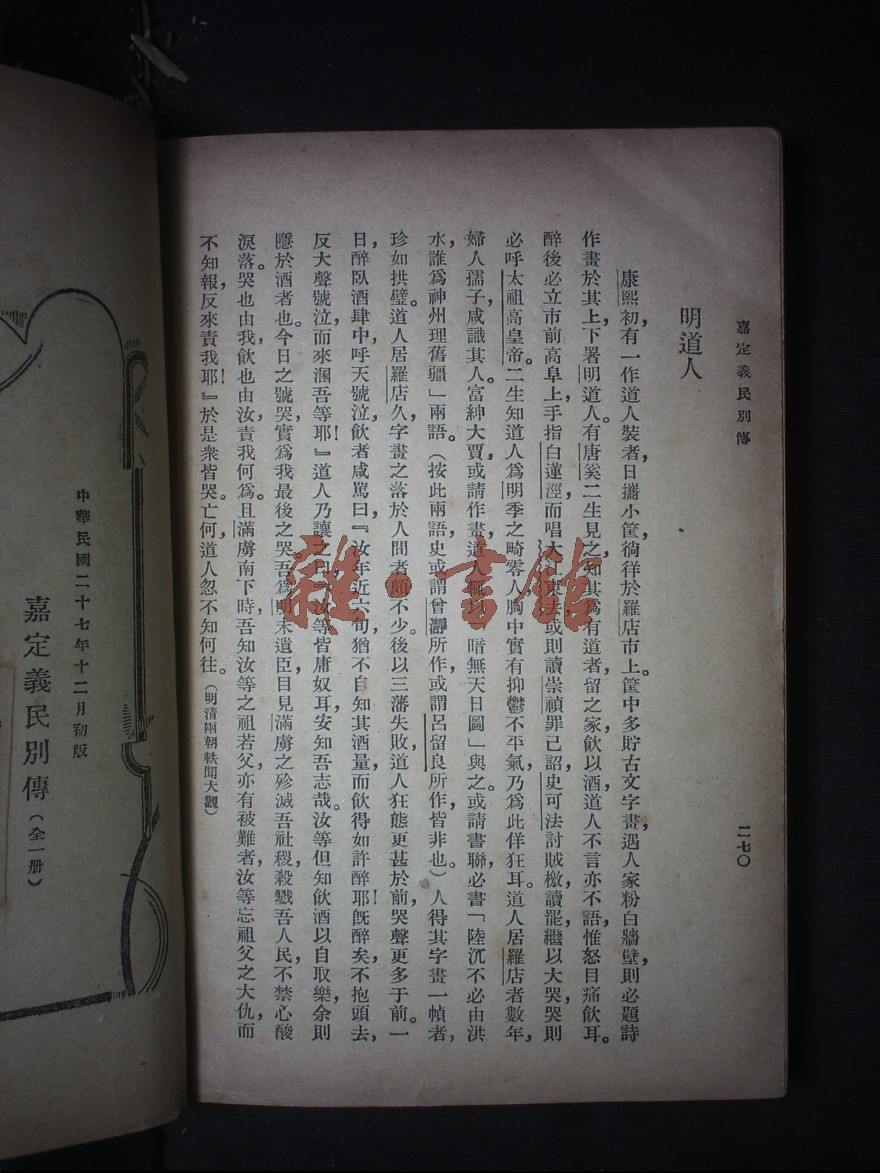 嘉定義民別傳
二七〇
明道人
康熙初，有一作道人裝者，日攜小筐，徜徉於羅店市上。筐中多貯古文字畫，遇人家粉白牆壁，則必題詩
作畫於其上，下署明道人。有唐奚二生見之，知其爲有道者，留之家，飲以酒，道人不言亦不語，惟怒目痛飲耳。
醉後必立市前高阜上，手指白蓮涇，而唱大江東去，或則讀崇禎罪己詔，史可法討賊檄，讀罷，繼以大哭，哭則
必呼太祖高皇帝。二生知道人爲明季之畸零人，胸中實有抑鬱不平氣，乃爲此佯狂耳。道人居羅店者數年，
婦人孺子，咸識其人。富紳大賈，或請作畫，道人輒以「暗無天日圖」與之。或請書聯，必書「陸沉不必由洪
水，誰爲神州理舊疆」兩語。（按此兩語，史或謂曾靜所作，或謂呂留良所作，皆非也。）人得其字畫一幀者，
珍如拱璧。道人居羅店久，字畫之落於人間者頗不少。後以三藩失敗，道人狂態更甚於前，哭聲更多于前。一
日，醉臥酒肆中，呼天號泣，飲者咸罵曰：『汝年近六旬，猶不自知其酒量，而飲得如許醉耶！旣醉矣，不抱頭去，
反大聲號泣，而來溷吾等耶！』道人乃讓之曰：汝等皆庸奴耳，安知吾志哉。汝等但知飲酒以自取樂，余則
隱於酒者也。今日之號哭，實爲我最後之哭。吾爲明末遺臣，目見滿虜之殄滅吾社稷，殺戮吾人民，不禁心酸
淚落。哭也由我，飲也由汝，責我何爲。且滿虜南下時，吾知汝等之祖若父，亦有被難者，汝等忘祖父之大仇，而
不知報，反來責我耶！』於是衆皆哭。亡何，道人忽不知何往。（明清兩朝軼聞大觀）
中華民國二十七年十二月初版
嘉定義民別傳（全一册）
雜·書館